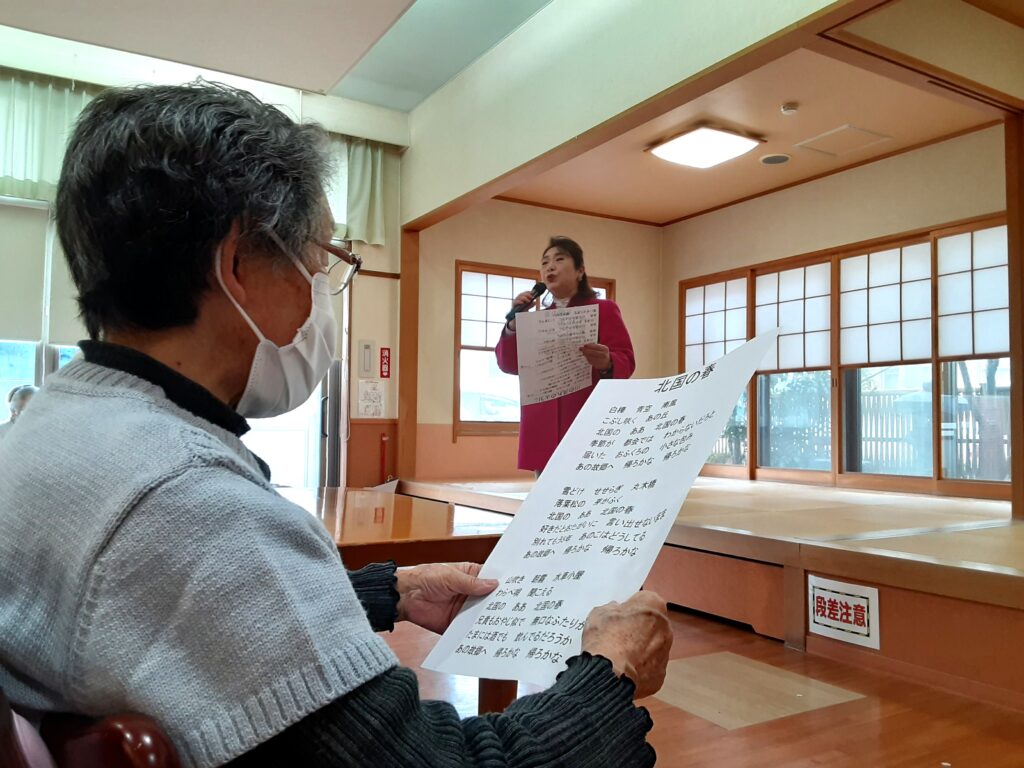 北国の春
白樺 青空 南風
こぶし咲く あの丘
北国の ああ 北国の春
季節が 都会では わからないだろと
届いた おふくろの 小さな包み
あの故郷へ 帰ろかな 帰ろかな
雪どけ せせらぎ 丸木橋
落葉松の 芽がふく
北国の ああ 北国の春
好きだとおたがいに 言い出せないまま
別れてもう5年 あのこはどうしてる
あの故郷へ 帰ろかな 帰ろかな
山吹き 朝霧 水車小屋
わらべ唄 聞こえる
北国の ああ 北国の春
兄貴もおやじ似で 無口なふたりが
たまには酒でも 飲んでるだろうか
あの故郷へ 帰ろかな 帰ろかな
消火器
段差注意